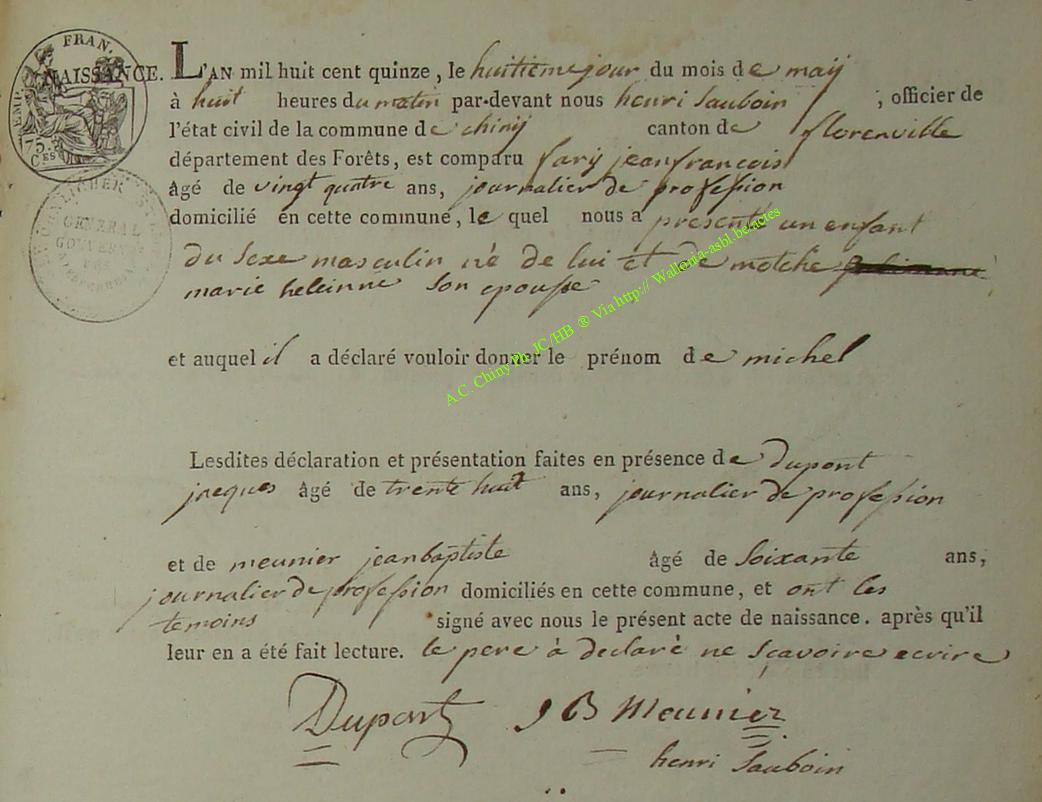 FRAN.
EMP.
75.
C.es
NAISSANCE. L'AN mil huit cent quinze, le huitieme jour du mois de maij
à huit heures du matin par-devant nous henri Sauboin , officier de
l'état civil de la commune de chinij canton de florenville
département des Forêts, est comparu farij jean francois
âgé de vingt quatre ans, journalier de profession
domicilié en cette commune, le quel nous a presenté un enfant
du sexe masculin né de lui et de motche
marie heleinne son epouse
et auquel il a déclaré vouloir donner le prénom de michel
Lesdites déclaration et présentation faites en présence de dupont
jacques âgé de trente huit ans, journalier de profession
et de meunier jean baptiste âgé de soixante ans,
journalier de profession domiciliés en cette commune, et ont les
temoins signé avec nous le présent acte de naissance. après qu'il
leur en a été fait lecture. le pere à declaré ne scavoire ecrire
Dupont J B Meunier
henri Sauboin
GENERAL
GOUVERN
A.C. Chiny Ph. JC/HB ® Via http:// Wallonia-asbl.be.actes